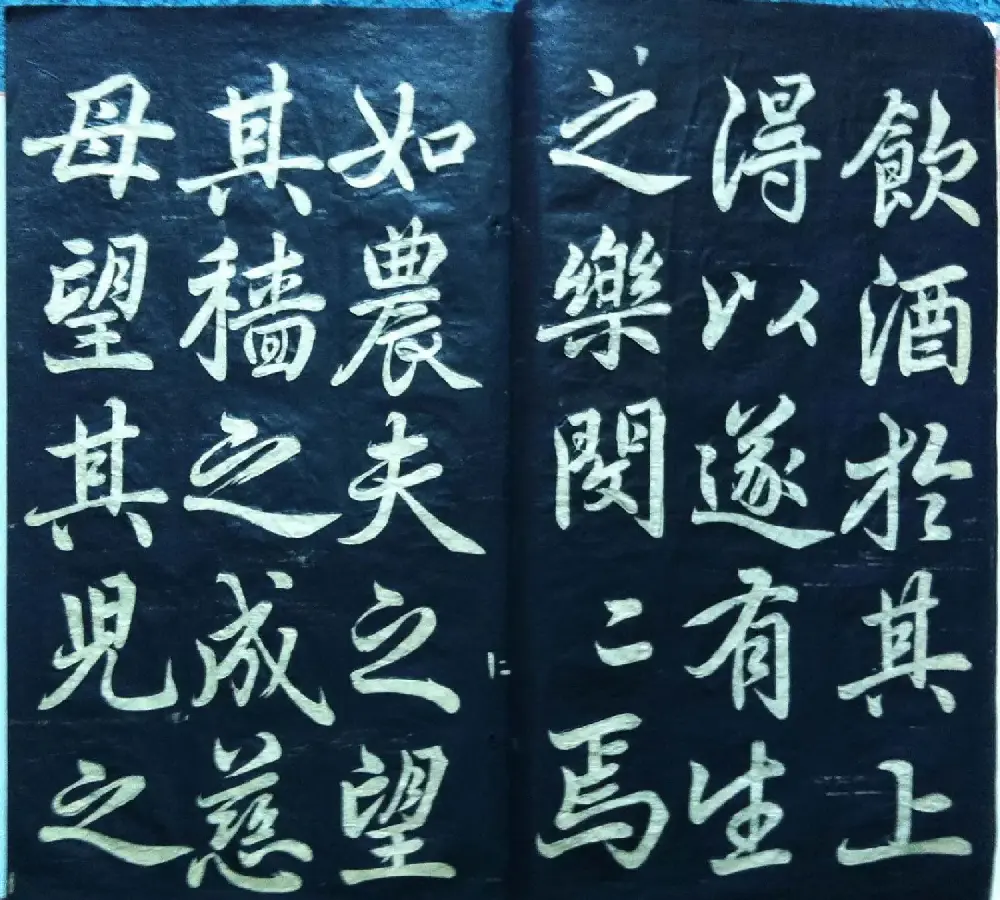 飲酒於其上
得以遂有生
之樂閔〻焉
如農夫之望
其穡之成慈
母望其兒之
二